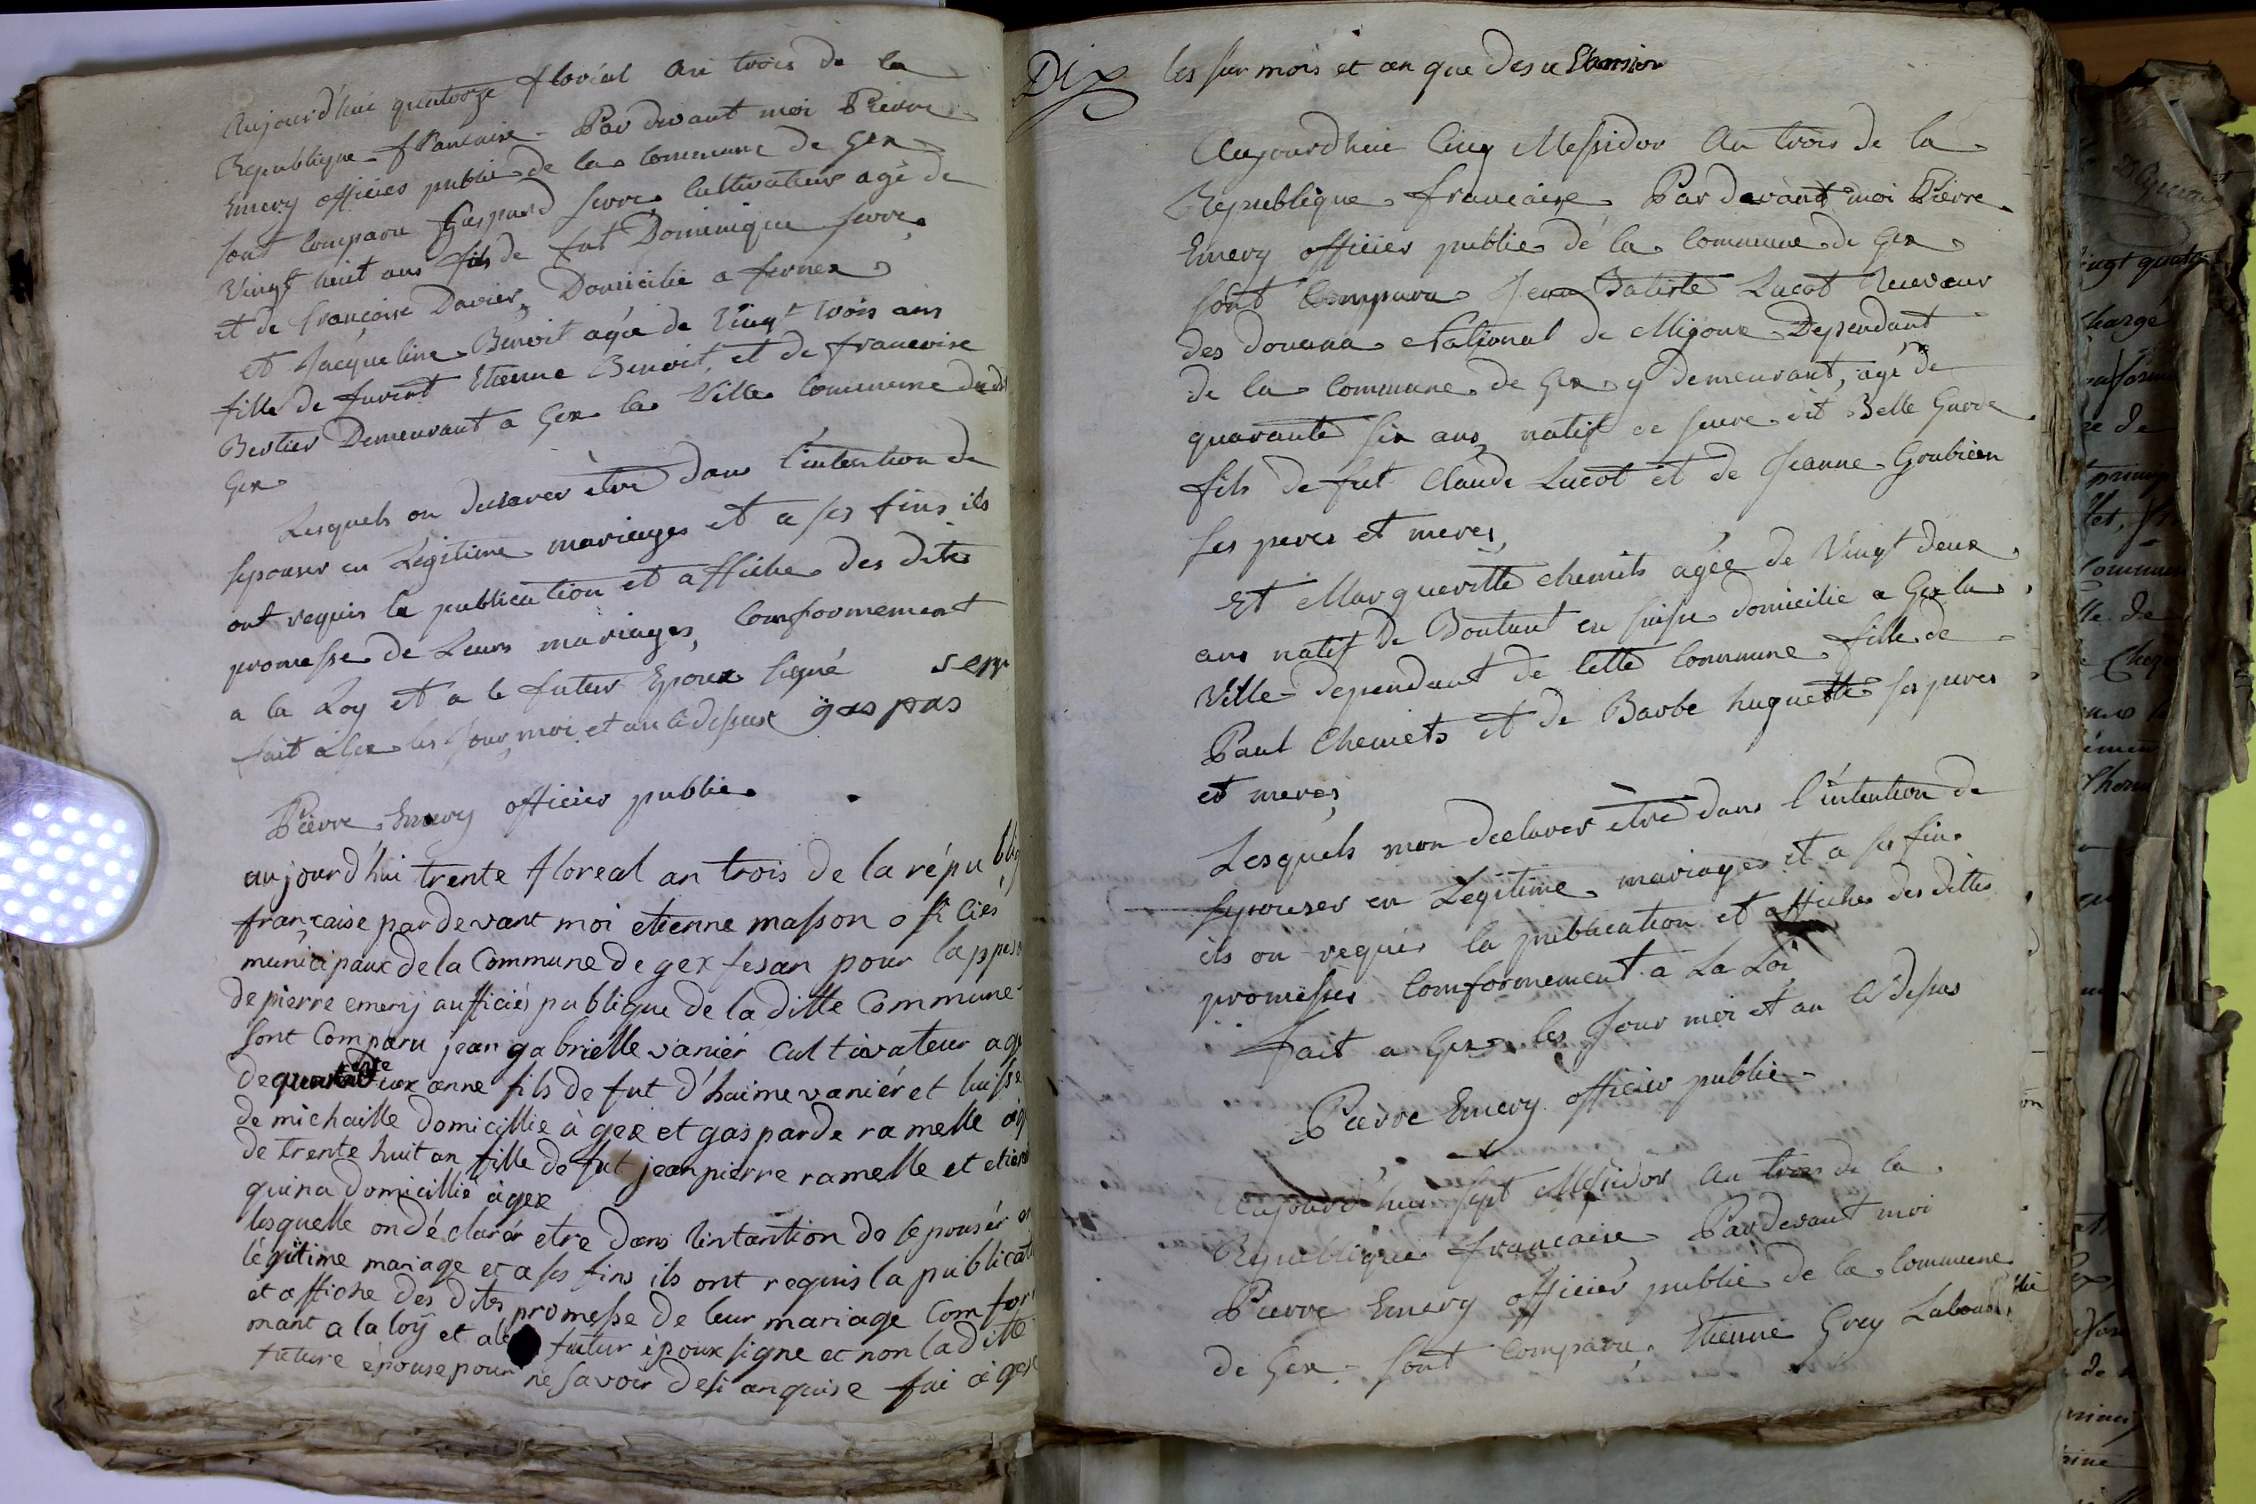 Aujourd'hui quatorze floréal an trois de la
Republique francaise - Par devant moi Pierre
Emery officier public de la Commune de Gex
sont Comparu Gaspard serre Cultivateur agé de
Vingt huit ans fils de fut Dominique serre
et de françoise Davier Domicilié a fernex
et Jacqueline Benoit agée de Vingt trois ans
fille de furent Etienne Benoit, et de francoise
Bertier Demeurant a Gex la Ville Commune dudit
Gex
Lesquels on declarer être dans l'intention de
sepouser en Legitime mariages et a ses fins ils
ont requis la publication et affiche des dites
promesse de Leurs mariages, Conformement
a la Loy et a le futur Epoux signé
fait a Gex les Jour moi et an cidessus gaspas serr
Pierre Emery officier public
aujourd'hui trente floreal an trois de la répu bliq
française pardevant moi etienne masson o fi cies
municipaux de la Commune de gex fesan pour lappes
de pierre emerij aufficiés publique de la ditte Commune
sont Comparu jean gabrielle vaniér Cultivateur ag
de deux anne fils de fut d'haime vaniér et luisse
de michaille domicillie à gex et gasparde ramelle ag
de trente huit an fille de fut jean pierre ramelle et etien
quina domicillié à gex
lesquelle on dé clarér etre dans lintantion de sepousér en
légitime mariage et a ses fins ils ont requis la publicat
et affiche des dites promesse de leur mariage Comfor
mant a la loÿ et a le futur époux signe et non la ditte
future épouse pour ne savoir de si anquise fai à gex
Dix les sur mois et an que desu
Aujourdhui Cinq Messidor An trois de la
Republique francaise Par devant moi Pierre
Emery officier public dé la Commune de Gex
sont Comparu Jean Batiste Lucot Receveur
des douana National de Mijoux Dependant
de la Commune de Gex y demeurant, agé de
quarante six ans, natif de seure dit Belle Garde
fils de fut Claude Lucot et de Jeanne Goubicen
ses peres et meres,
Et Margueritte chemits agée de Vingt deux
ans natif de Boutant en suisse domicilie a Gex la
Ville dependant de Cette Commune fille de
Paul Chemets et de Barbe huguette ses peres
et meres,
Lesquels mon declarer être dans l'intention de
sepouser en Legitime mariages et a ses fins
ils on requis la publication et affiches des dittes
promesses Comformement à La Loi
Fait a Gex les Jour moi et an cidesus
Pierre Emery officier public
Aujourd'hui sept Messidor An trois de la
Republique francaise Pardevant moi
Pierre Emery officier public de la Commune
de Gex - sont Comparu Etienne Grey